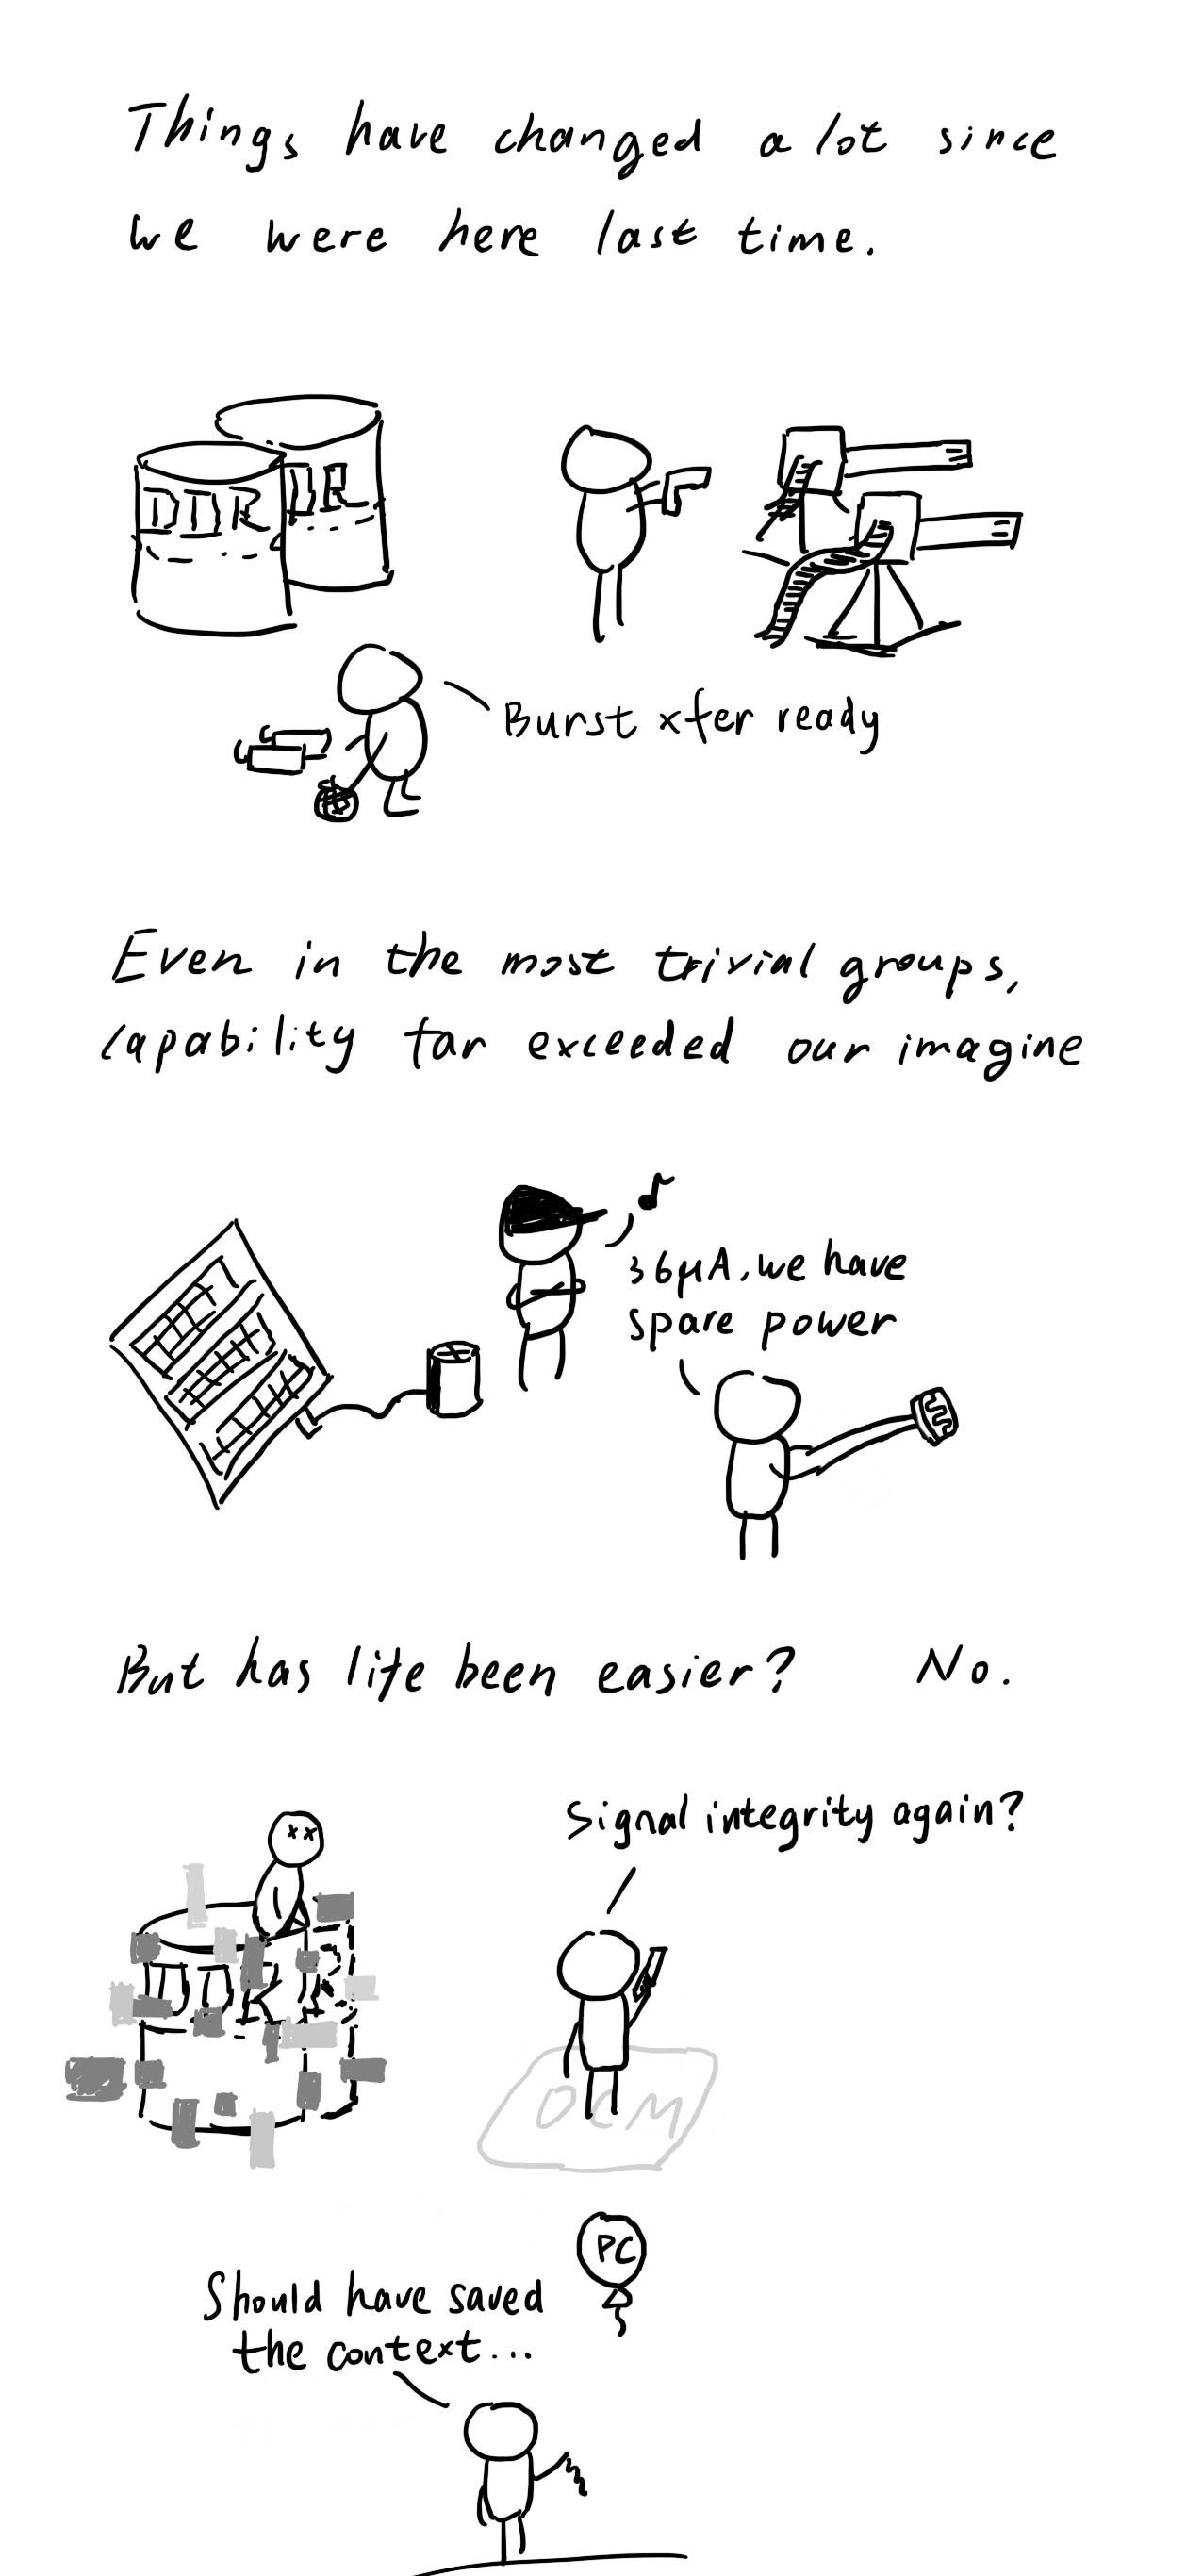 Things have changed a lot since
we were here last time.
DDR
DR
Burst xfer ready
Even in the most trivial groups,
capability far exceeded our imagine
36μA, we have
spare power
But has life been easier? No.
Signal integrity again?
DDR
R
OCM
PC
Should have saved
the context...